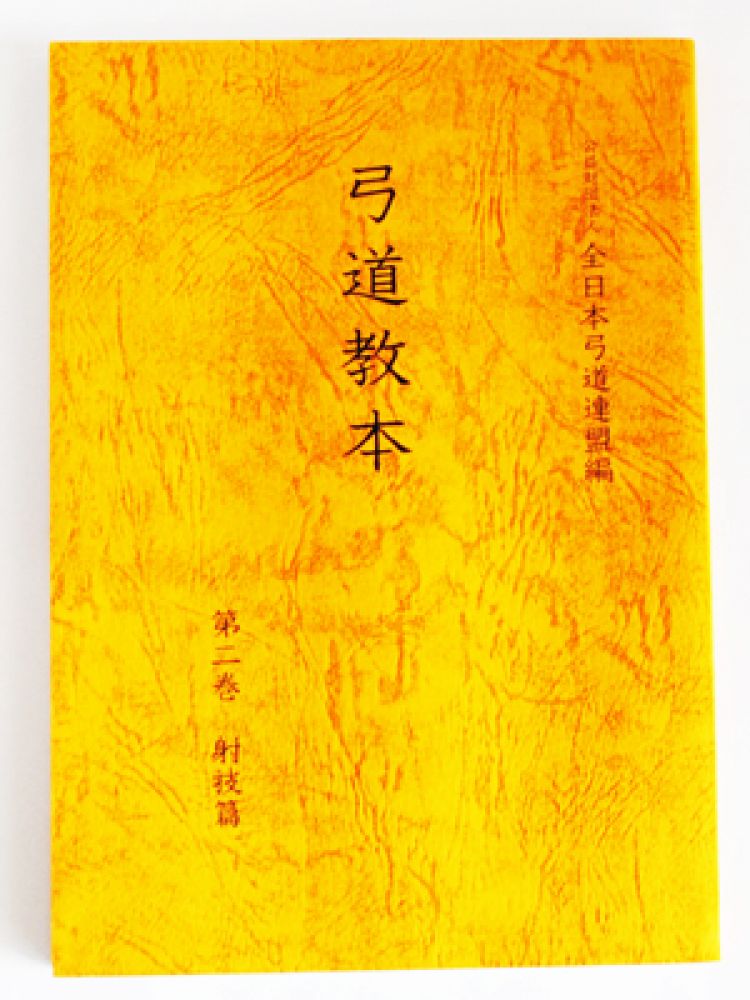 公益財団法人 全日本弓道連盟編
弓道教本
第二巻 射技篇